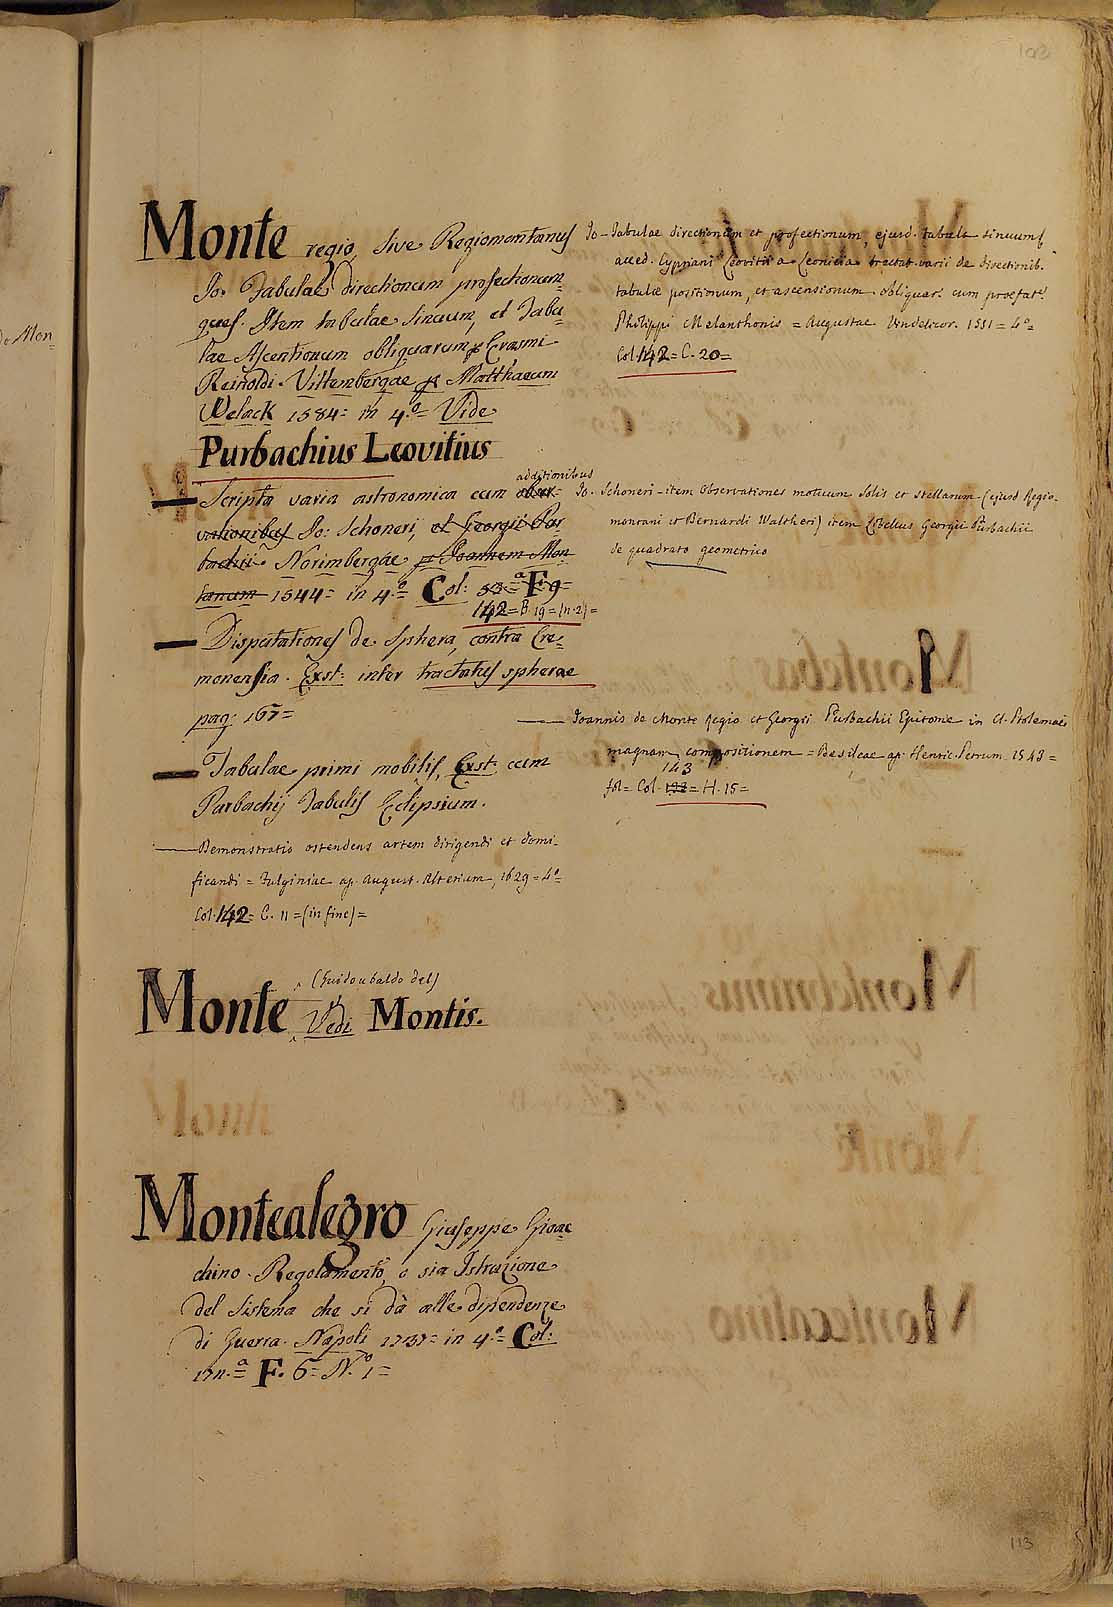 103
Monte regio, sive Regiomontanus
Jo. Tabulae directionum profectionum-
ques. Item tabulae sinuum, et Tabu-
lae Ascentionum obliquarum p Erasmi
Reinoldi. Vittembergae p Matthaeum
Welack 1584= in 4.º= Vide
Purbachius Leovitius
— Scripta varia astronomica cum additionibus
vationibus Jo: Schoneri, et Georgii Pur
bachii. Norimbergae p Joannem Mon
tanum 1544= in 4.º= Col: 53=ª F. 9=
142= B. 19= (n. 2)=
— Disputationes de Sphera, contra Cre-
monensia. Exst: inter tractatus spherae
pag: 167=
— Tabulae primi mobilis, Exst: cum
Purbachij Tabulis Eclipsium.
— Demonstratio ostendens artem dirigendi et domi-
ficandi = Fulginiae ap. August. Alterium, 1629= 4º=
Col. 142= C. 11= (in fine)=
Jo- Tabulae directionum et profectionum, ejusd. tabula sinuum
acced. Cypriani Leovitii a Leonicia tractat. varii de direction ib.
tabulae positionum, et ascensionum obliquar. cum praefat.
Philippi Melanthonis = Augustae Vindelicor. 1551= 4º=
Col. 142= C. 20=
Jo. Schoneri - item Observationes motuum Solis et stellarum (ejusd Regio-
montani et Bernardi Waltheri) item Libellus Georgii Purbachii
de quadrato geometrico
— Joannis de Monte Regio et Georgii Purbachii Epitome in Cl. Ptolemaei
magnam compositionem = Basileae ap. Henric. Petrum 1543=
143
fol= Col. 132= H. 15=
(Guidoubaldo del)
Monte Vedi Montis.
Montealegro Giuseppe Gioac
chino. Regolamento, o sia Istruzione
del Sistema che si dà alle dipendenze
di Guerra. Napoli 1737= in 4.º= Col:
174.ª= F. 6= N.º 1=
113